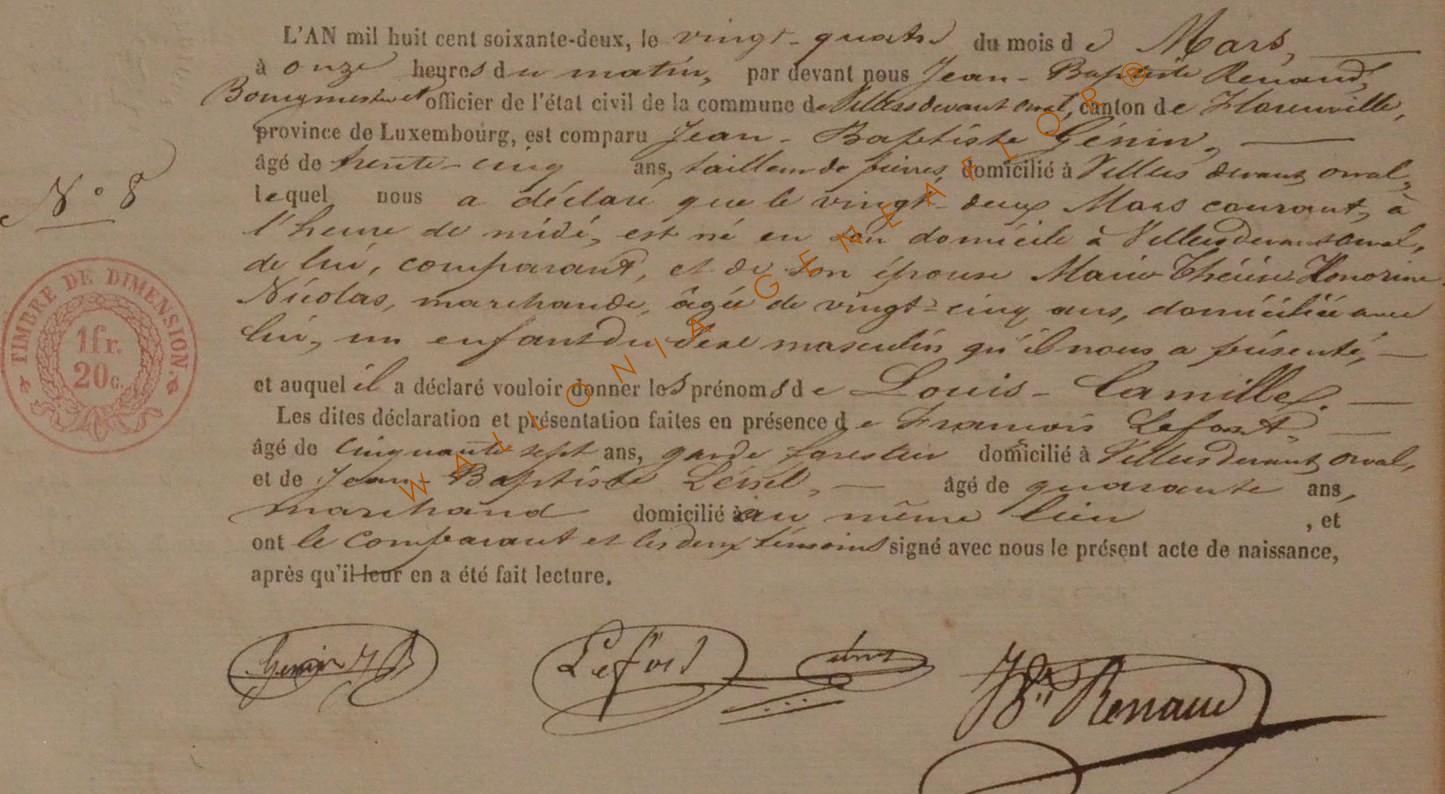 L'AN mil huit cent soixante-deux, le vingt-quatre du mois de Mars,
à onze heures du matin, par devant nous Jean-Baptiste Renaud,
Bourgmestre et officier de l'état civil de la commune de Villers devant orval, canton de Florenville,
province de Luxembourg, est comparu Jean-Baptiste Génin,
âgé de trente-cinq ans, tailleur de pierres, domicilié à Villers devant orval,
lequel nous a déclaré que le vingt-deux Mars courant, à
N° 8
l'heure de midi, est né en son domicile à Villers devant orval,
de lui, comparant, et de son épouse Marie Thérèse Honorine
Nicolas, marchande, âgée de vingt-cinq ans, domiciliée avec
lui, un enfant du sexe masculin qu'il nous a présenté,
et auquel il a déclaré vouloir donner les prénoms de Louis-Camille.
Les dites déclaration et présentation faites en présence de François Lefort
âgé de cinquante sept ans, garde forestier domicilié à Villers devant orval,
et de Jean Baptiste âgé de quarante ans,
marchand domicilié au même lieu, et
ont le comparant et les deux témoins signé avec nous le présent acte de naissance,
après qu'il leur en a été fait lecture.
TIMBRE DE DIMENSION.
1fr.
20c.
Genin J B
Lefort
JBte Renaud
WALLONIA GENEAFLOR ®